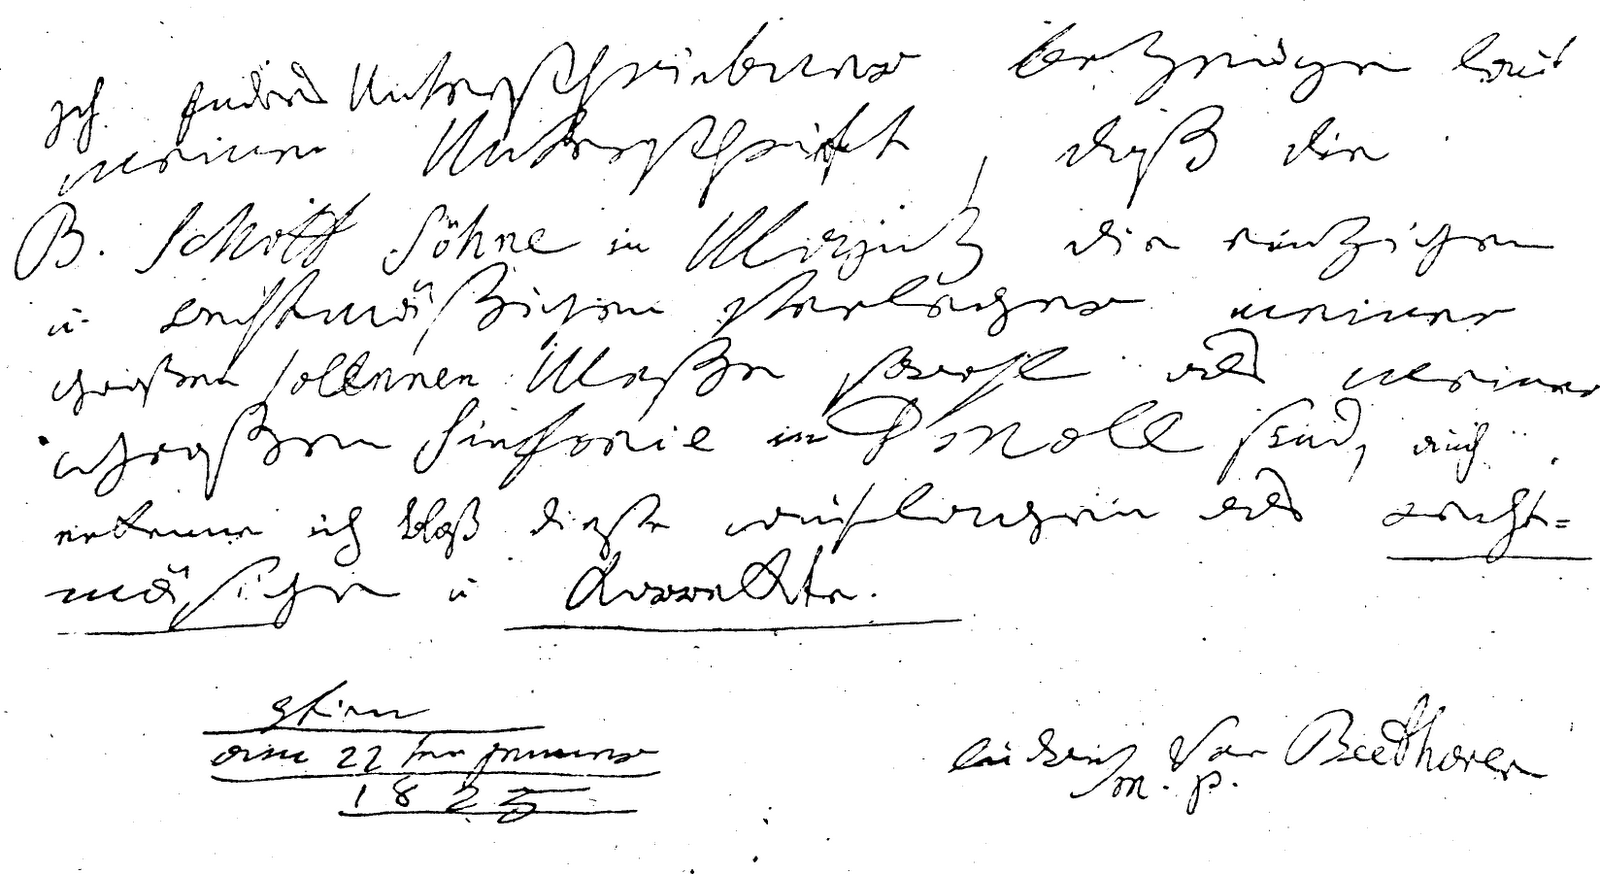 Ich Endes Unterschriebener bezeuge laut
meiner Unterschrift, daß die
B. Schott Söhne in Maynz die einzigen
u. rechtmäßigen Verleger meiner
großen solennen Meße sowohl als meiner
großen Sinfonie in D moll sind, auch
erkenne ich bloß diese auflagen als recht=
mäßige u korrekte.
Wien
am 22ten jenner
1825
ludwig van Beethoven
m. p.